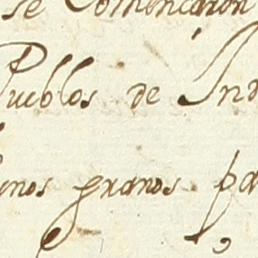 se Comencaron
Pueblos de Ind
inos granos pa